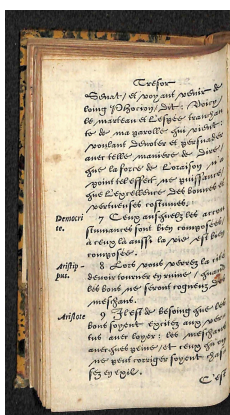 Tresor
Senat, et voyant venir de
loing Phocion, dit: Voicy
le marteau et l'espee trenchan
te de ma parolle qui vient:
voulant denoter et persuader
avec telle maniere de dire,
que la force de l'oraison n'a
point tel effect, ne puissance,
que l'excellence des bonnes et
vertueuses coustumes.
Democri
te.
7 Ceux ausquelz les
sont bien composées,
à ceux là aussi la vie est bien
composée.
Aristip-
pus.
8 Lors vous verrez la cité
devoir tourner en ruine, quand
les bons ne seront cogneuz
meschans.
Aristote
9 Il est de besoing que les
bons soyent excitez aux ver
tus avec loyer: les meschans
avec peine, et ceux qui
ne peut corriger soyent chas
sez en exil.
C'est